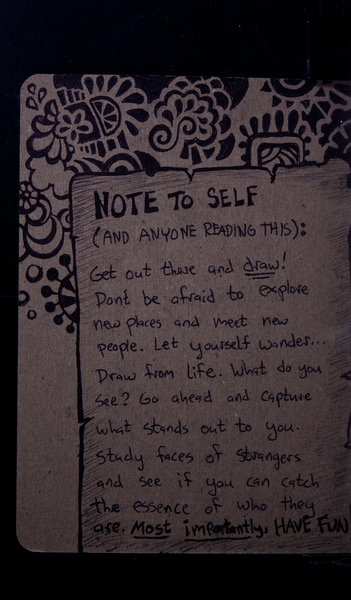 NOTE TO SELF
(AND ANYONE READING THIS):
Get out there and draw!
Dont be afraid to explore
new places and meet new
people. Let yourself wander...
Draw from life. What do you
see? Go ahead and capture
what stands out to you.
Study faces of strangers
and see if you can catch
the essence of who they
are. Most importantly, HAVE FUN